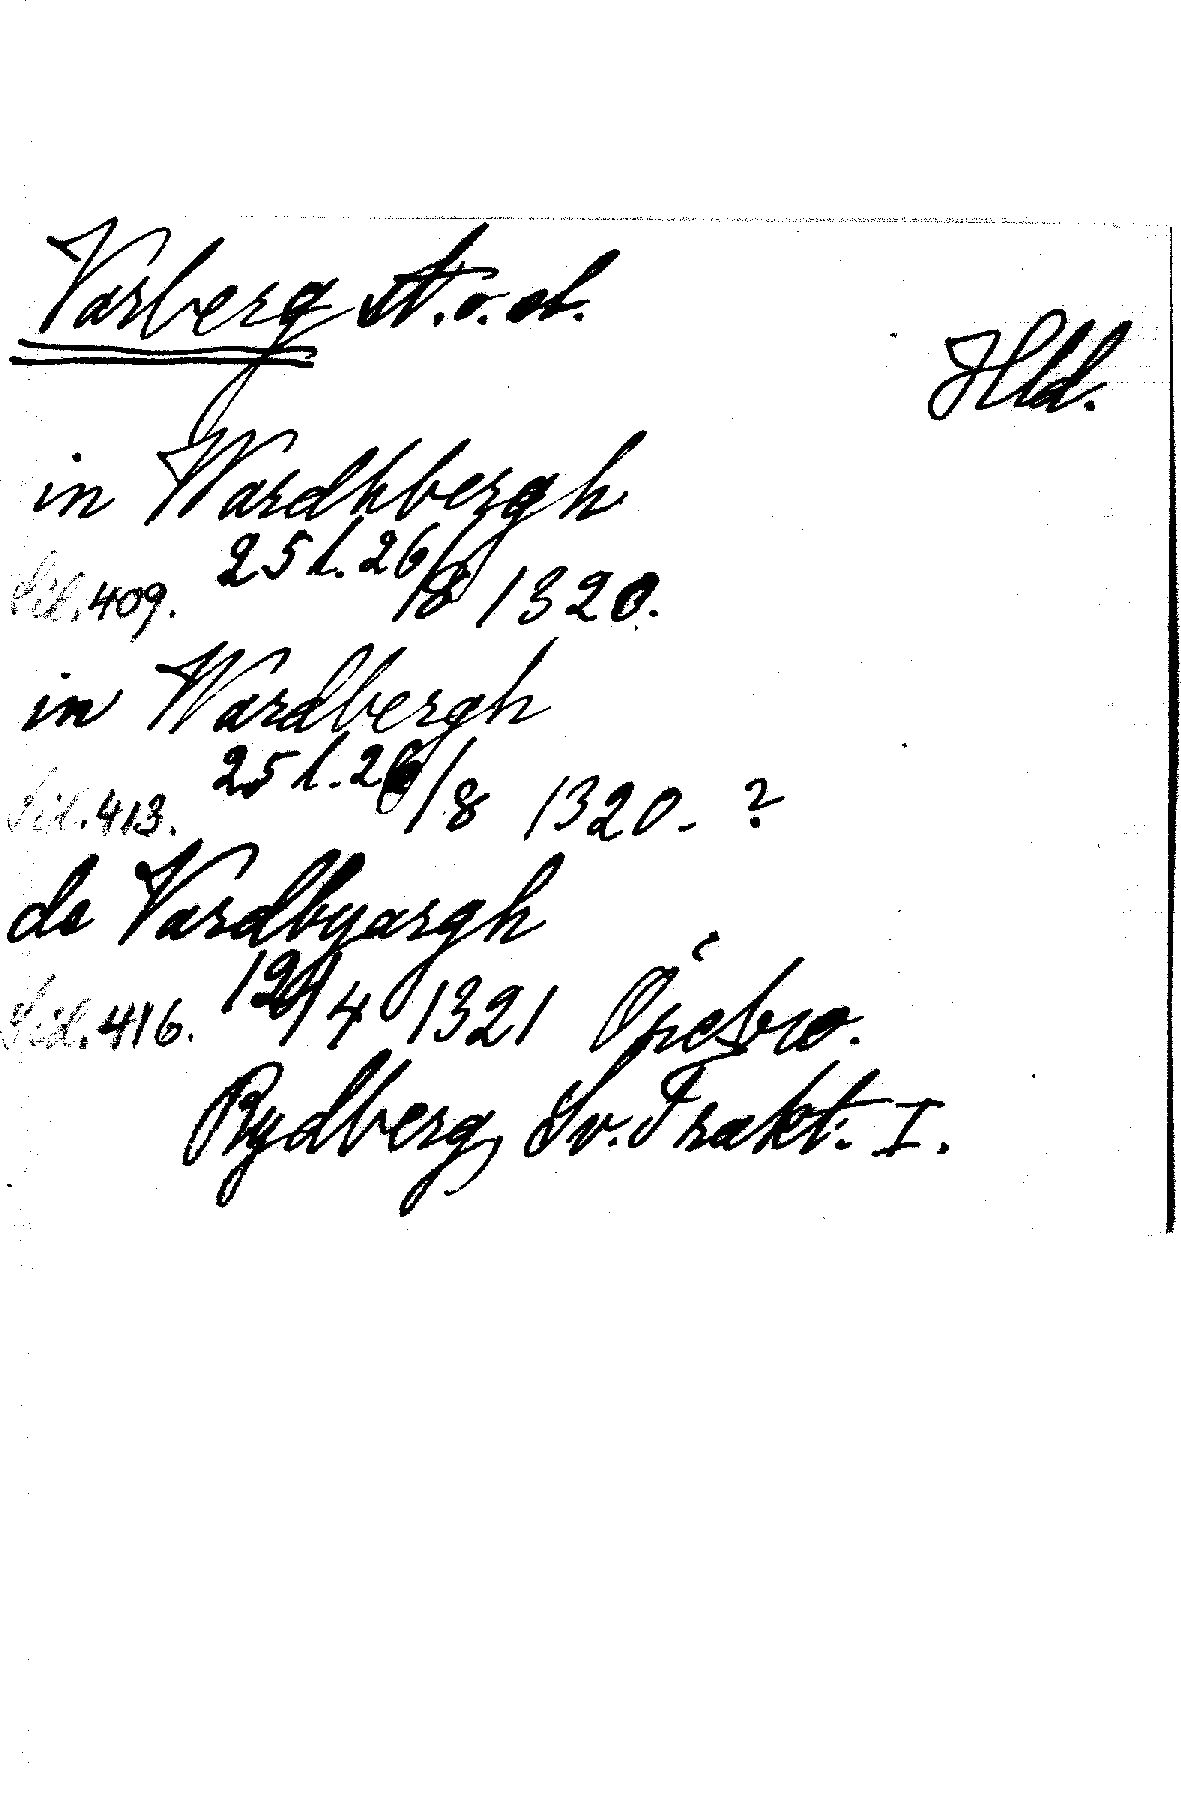 Varberg St. o. sl.
Hld.
in Wardhbergh
Sid. 409. 25 l. 26/8 1320.
in Wardbergh
Sid. 413. 25 l. 26/8 1320. ?
de Vardbyargh
Sid. 416. 12/4 1321 Örebro.
Rydberg, Sv. Trakt. I.